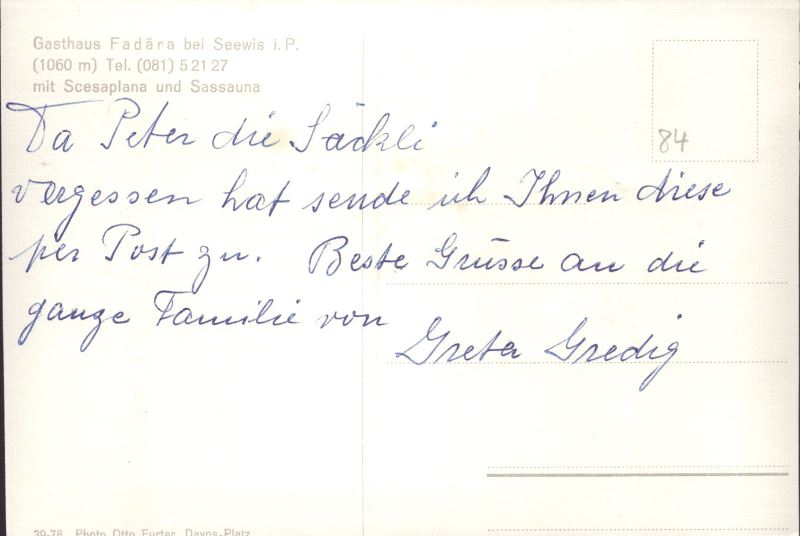 Gasthaus Fadära bei Seewis i. P.
(1060 m) Tel. (081) 5 21 27
mit Scesaplana und Sassauna
84
Da Peter die Säckli
vergessen hat sende ich Ihnen diese
per Post zu. Beste Grüsse an die
ganze Familie von
Greta Gredig
39-78 Photo Otto Furter, Davos-Platz